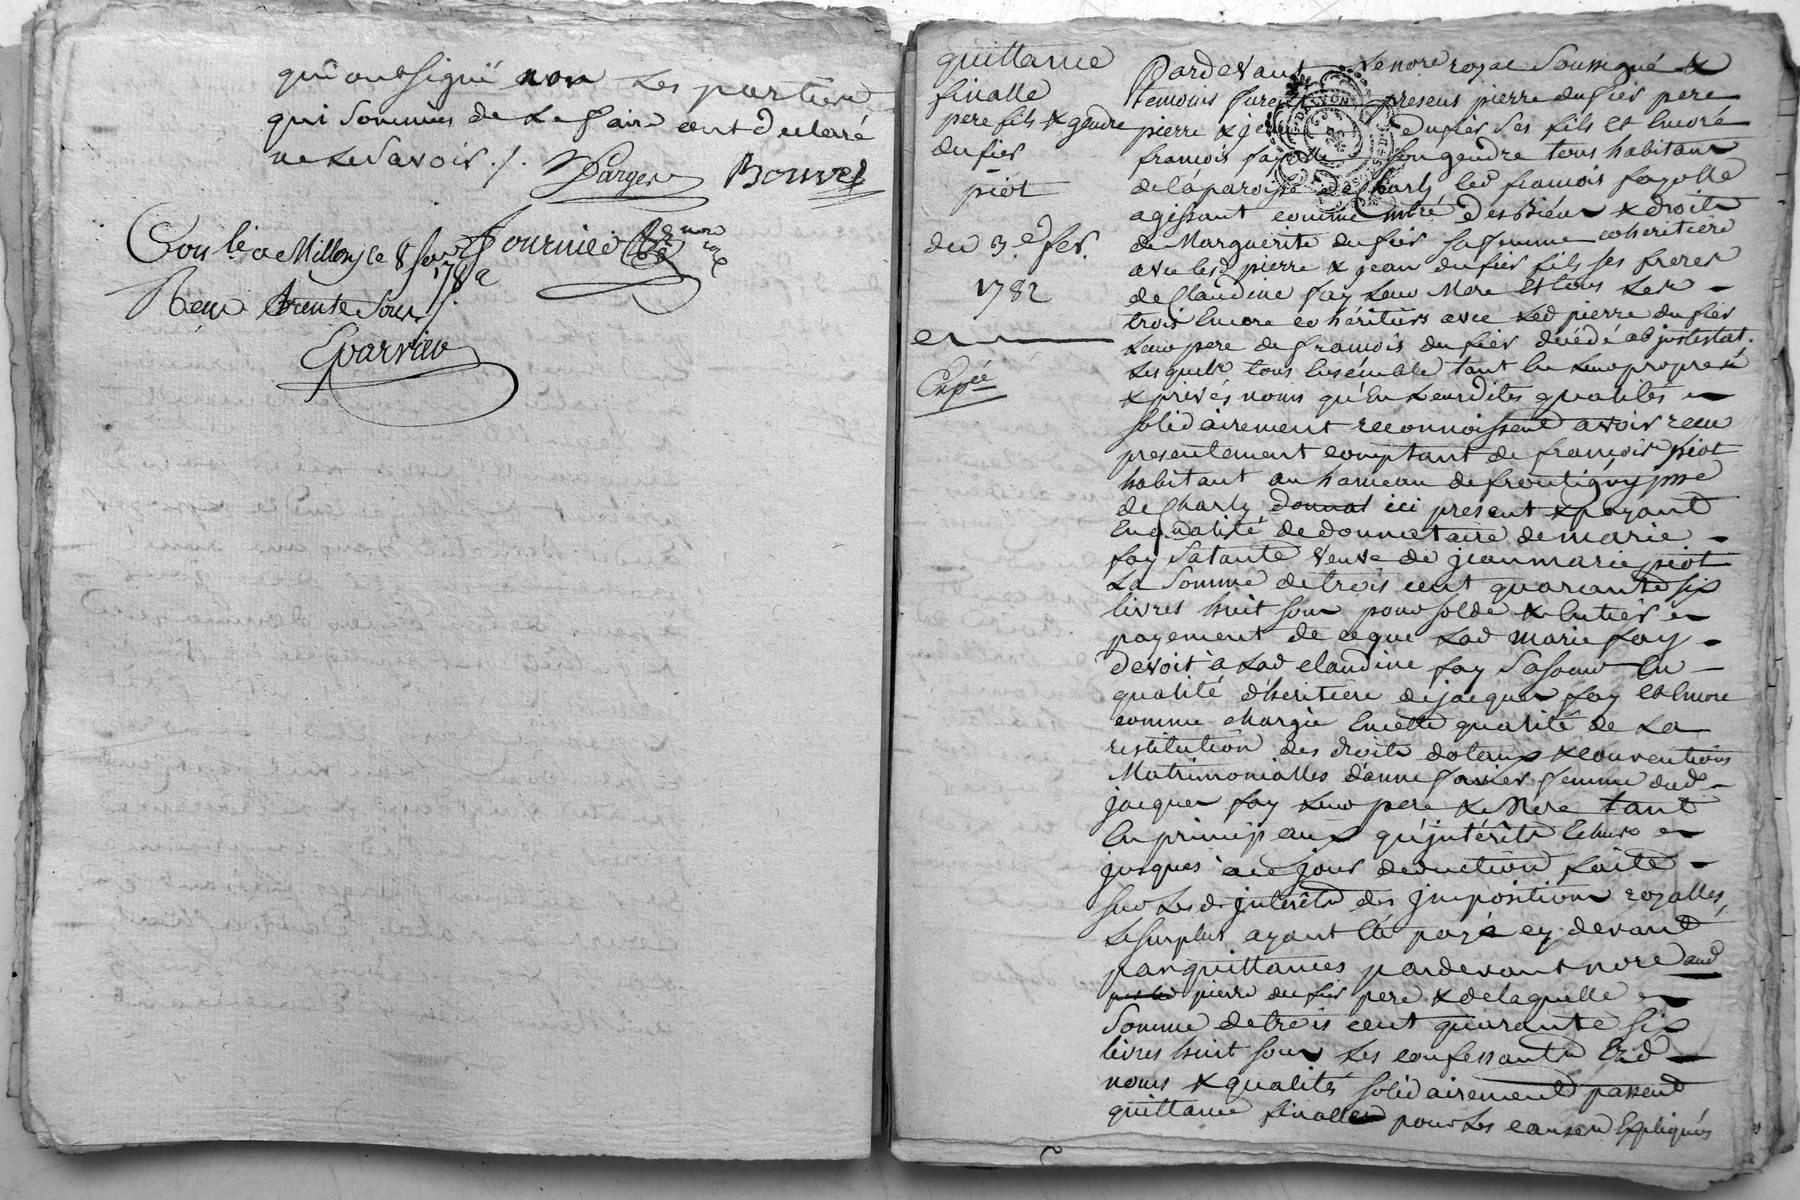 qui ont signé non Les parties
qui sommées de Le faire ont declaré
ne Le Savoir ./.
Bouvet
Fournier
Con.lé a Millery le 8 1782
Reçu trente sous
quittance
finalle
pere fils & gendre
dufier
piot
du 3.e fev.
1782
Exp.ée
Pardevant Le no.re royal Soussigné &
temoins furent presens pierre dufier pere
pierre & jean dufier Ses fils et Encore
françois fayolle Son gendre tous habitans
de la paroisse de Charly led françois fayolle
agissant comme m.tre des biens & droits
de Marguerite dufier Sa femme coheritiere
avec lesd. pierre & jean dufier fils Ses freres
de Claudine fay Leur Mere et tous Les
trois Encore cohéritiers avec Led pierre dufier
Leur pere de françois dufier décédé ab jntestat.
Lesquels tous Ensemble tant En Leurs propres
& privés noms qu'En Leursdites qualités
solidairement reconnoissent avoir recu
presentement comptant de françois piot
habitant au hameau de frontigny p.sse
de Charly donnat ici present & payant
En qualité de donnataire de marie
fay Sa tante veuve de jean marie piot
La Somme de trois cent quarante six
livres huit sous pour solde & Entier
payement de ce que Lad marie fay
devoit à Lad claudine fay Sa soeur En
qualité d'heritiere de jacques fay et Encore
comme chargée En cette qualité de La
restitution des droits dotaux & conventions
Matrimonialles d'anne femme dud.
jacques fay Leur pere & Mere tant
En principaux qu'jntérêts Echus
jusques à ce jour deduction faite
sur Lesd. jnterêts des jmpositions royalles,
Le surplus ayant été payé cy devant
par quittances pardevant no.re aud
pierre dufier pere & de laquelle
Somme de trois cent quarante six
livres huit sous Les confessants Esd.
noms & qualités solidairement passent
quittance finalle pour Les causes Expliquées